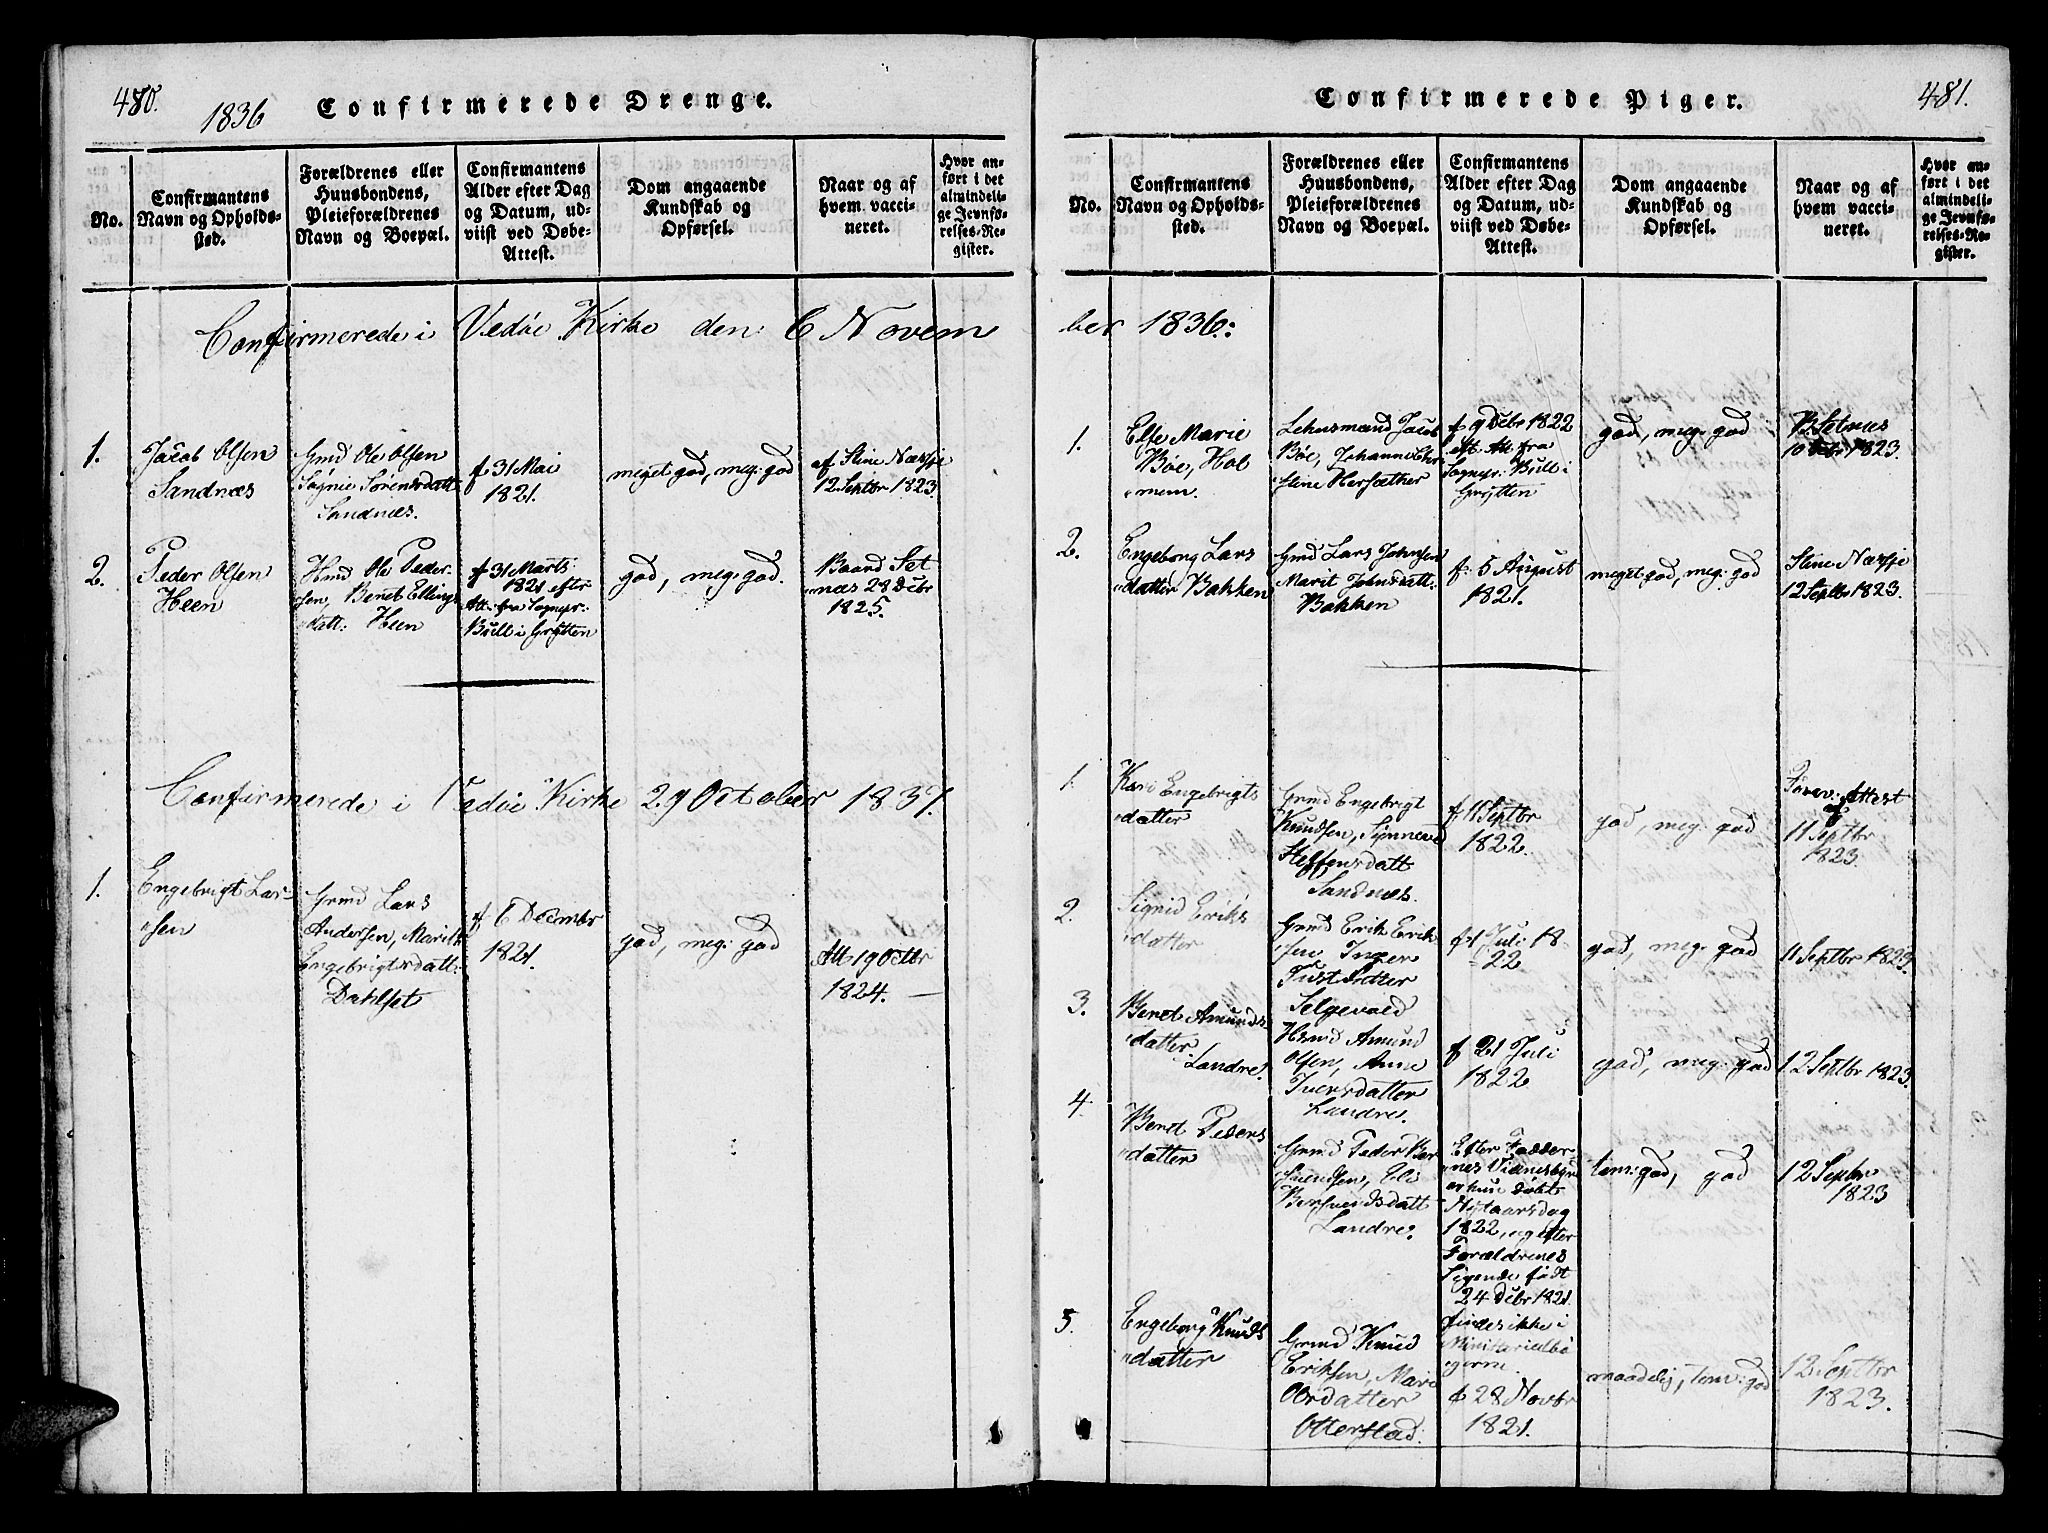 480.
1836 Confirmerede Drenge.
No.
Confirmantens
Navn og Opholds-
sted.
Forældrenes eller
Huusbondens,
Pleieforældrenes
Navn og Boepæl.
Confirmantens
Alder efter Dag
og Datum, ud-
viist ved Døbe-
Attest.
Dom angaaende
Kundskab og
Opførsel.
Naar og af
hvem vacci-
neret.
Hvor an-
ført i det
almindeli-
ge Jevnfø-
relses-Re-
gister.
Confirmerede i Vedøe Kirke den 6 Novem
1.
Jacob Olsen
Sandnæs
Gmd Ole Olsen
Søgnie Sørensdatt
Sandnæs.
f 31 Mai
1821.
meget god, meg: god
af Stine Næsje
12 Septbr 1823
2.
Peder Olsen
Heen
Hmd Ole Peder-
sen, Beret Ellings
datt: Heen
f 31 Marts
1821 efter
Att: fra Sognpr:
Bull i Grytten
god, meg: god.
Baard Set
næs 28 Debr
1825.
Confirmerede i Vedøe Kirke 29 October 1837.
1.
Engebrigt Lar-
sen
Grmd Lars
Andersen, Marith
Engebrigtsdatt:
Dahlset
f 6 Decembr
1821.
god, meg: god
Att 19 Octbr
1824.
481.
Confirmerede Piger.
No.
Confirmantens
Navn og Opholds-
sted.
Forældrenes eller
Huusbondens,
Pleieforældrenes
Navn og Boepæl.
Confirmantens
Alder efter Dag
og Datum, ud-
viist ved Døbe-
Attest.
Dom angaaende
Kundskab og
Opførsel.
Naar og af
hvem vacci-
neret.
Hvor an-
ført i det
almindeli-
ge Jevnfø-
relses-Re-
gister.
ber 1836:
1.
Else Marie
Bøe, Hol
mem.
Lehnsmand Jacob
Bøe, Johanne Chr
stine Hersæther
f 9 Debr 1822
eft. Att fra
Sognpr: Bull i
Grytten
god, meg: god
B Setnes
10 Octbr 1823.
2.
Engeborg Lars
datter Bakken
Gmd Lars Johnsen
Marit Johnsdatt:
Bakken
f: 5 August
1821.
meget god, meg: god
Stine Næsje
12 Septbr 1823.
1.
Kari Engebrigts
datter
Grmd Engebrigt
Knudsen, Synneved
Steffensdatt
Sandnæs.
f 11 Septbr
1822.
god, meg: god
Attest
11 Septbr
1823.
2.
Signid Eriks
datter
Grmd Erik Erik
sen Inger
Selgevold
f 1 Juli 18
22
god, meg: god
11 Septbr 1823.
3.
Beret Amunds
datter
Landre.
Hsmd Amund
Olsen, Anne
Iversdatter
Landre.
f 21 Juli
1822
god, meg: god
12 Septbr 1823.
4.
Beret Peders
datter
Grmd Peder Ber
sviendsen, Eli
Bersviendsdatt
Landre.
Efter Fadder
nes Vidnesbyrd
er hun døbt
Nytaarsdag
1822, og efter
Forældrenes
Sigende født
24 Debr 1821.
findes ikke i
Ministerialbø
gerne.
tem: god, god
12 Septbr
1823
5.
Engeborg Knuds
datter
Grmd Knud
Eriksen, Mari
Ordatter
Otterstad.
f 28 Novbr
1821.
maadelig, tem: god
12 Septbr
1823.